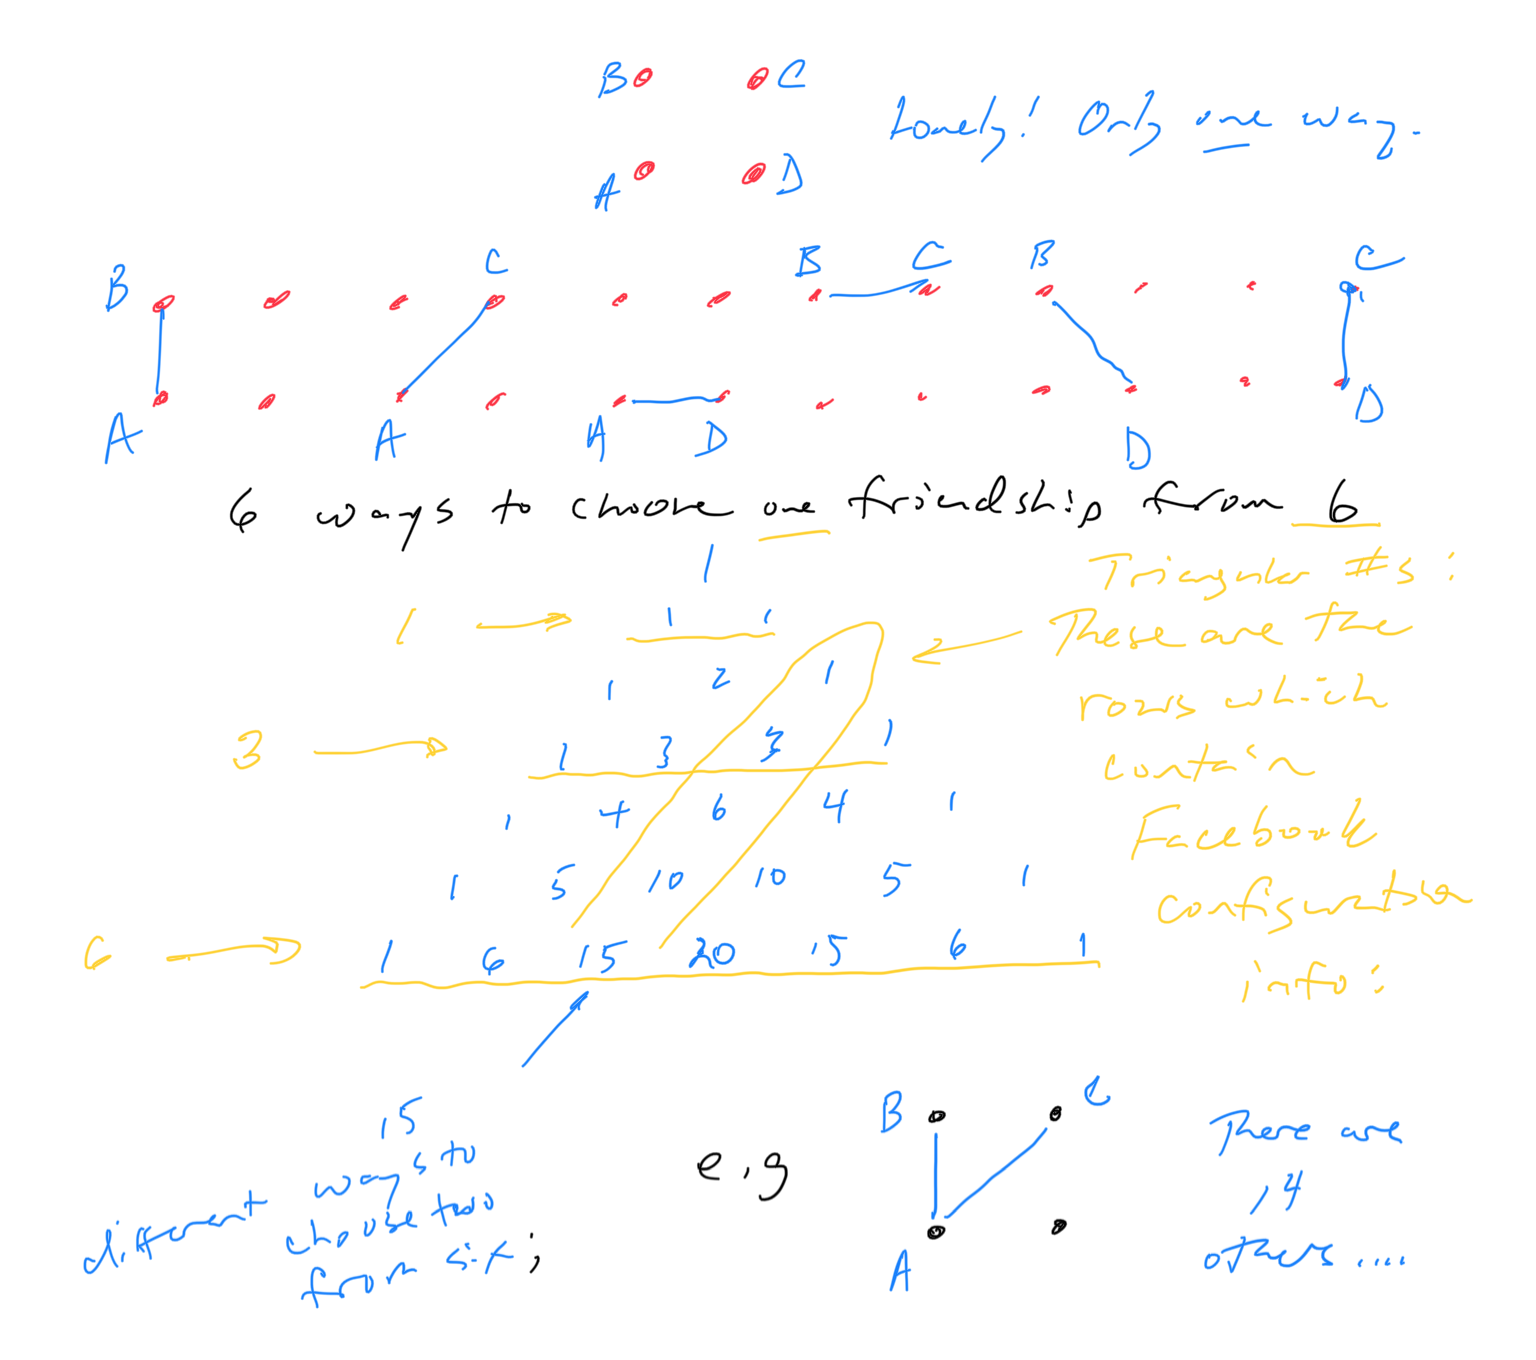 B C
Lonely! Only one way.
A D
B C B C B C
A A A D D D
6 ways to choose one friendship from 6
1
Triangular #s:
1 → 1 1
These are the
1 2 1
rows which
3 → 1 3 3 1
contain
1 4 6 4 1
Facebook
1 5 10 10 5 1
configuration
6 → 1 6 15 20 15 6 1
info:
15
different ways to
choose two
from six;
e.g
B C
A
There are
14
others....